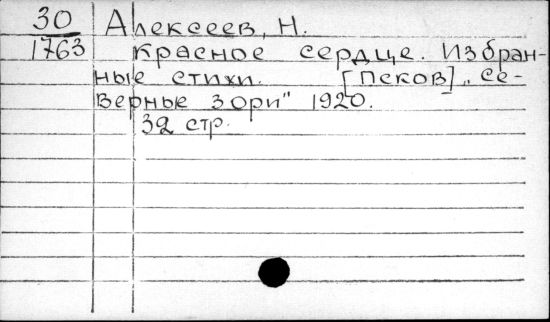 30 Алексеев, Н.
1763 Красное сердце. Избран-
ные стихи. [Псков] „Се-
верные зори" 1920.
32 стр.